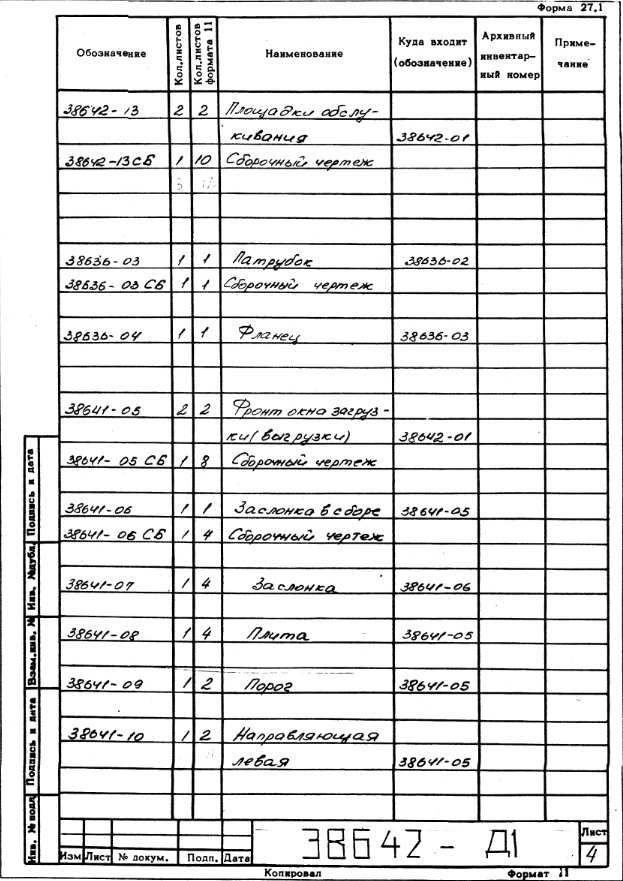 Форма 27.1
Обозначение Кол.листов Кол.листов формата 11 Наименование Куда входит (обозначение) Архивный инвентар-ный номер Приме-чание
38642-13 2 2 Площадки обслу-
живания 38642-01
38642-13СБ 1 10 Сборочный чертеж
38636-03 1 1 Патрубок 38636-02
38636-03 СБ 1 1 Сборочный чертеж
38636-04 1 1 Фланец 38636-03
38641-05 2 2 Фронт окно загруз-
ки(выгрузки) 38642-01
38641-05 СБ 1 8 Сборочный чертеж
38641-06 1 1 Заслонка в сборе 38641-05
38641-06 СБ 1 4 Сборочный чертеж
38641-07 1 4 Заслонка 38641-06
38641-08 1 4 Плита 38641-05
38641-09 1 2 Порог 38641-05
38641-10 1 2 Направляющая
левая 38641-05
Подпись и дата
Инв. №дубл.
Взам.инв. №
Подпись и дата
Инв. № подл
Изм Лист № докум. Подп. Дата
38642 - Д1
Лист
4
Копировал Формат 11